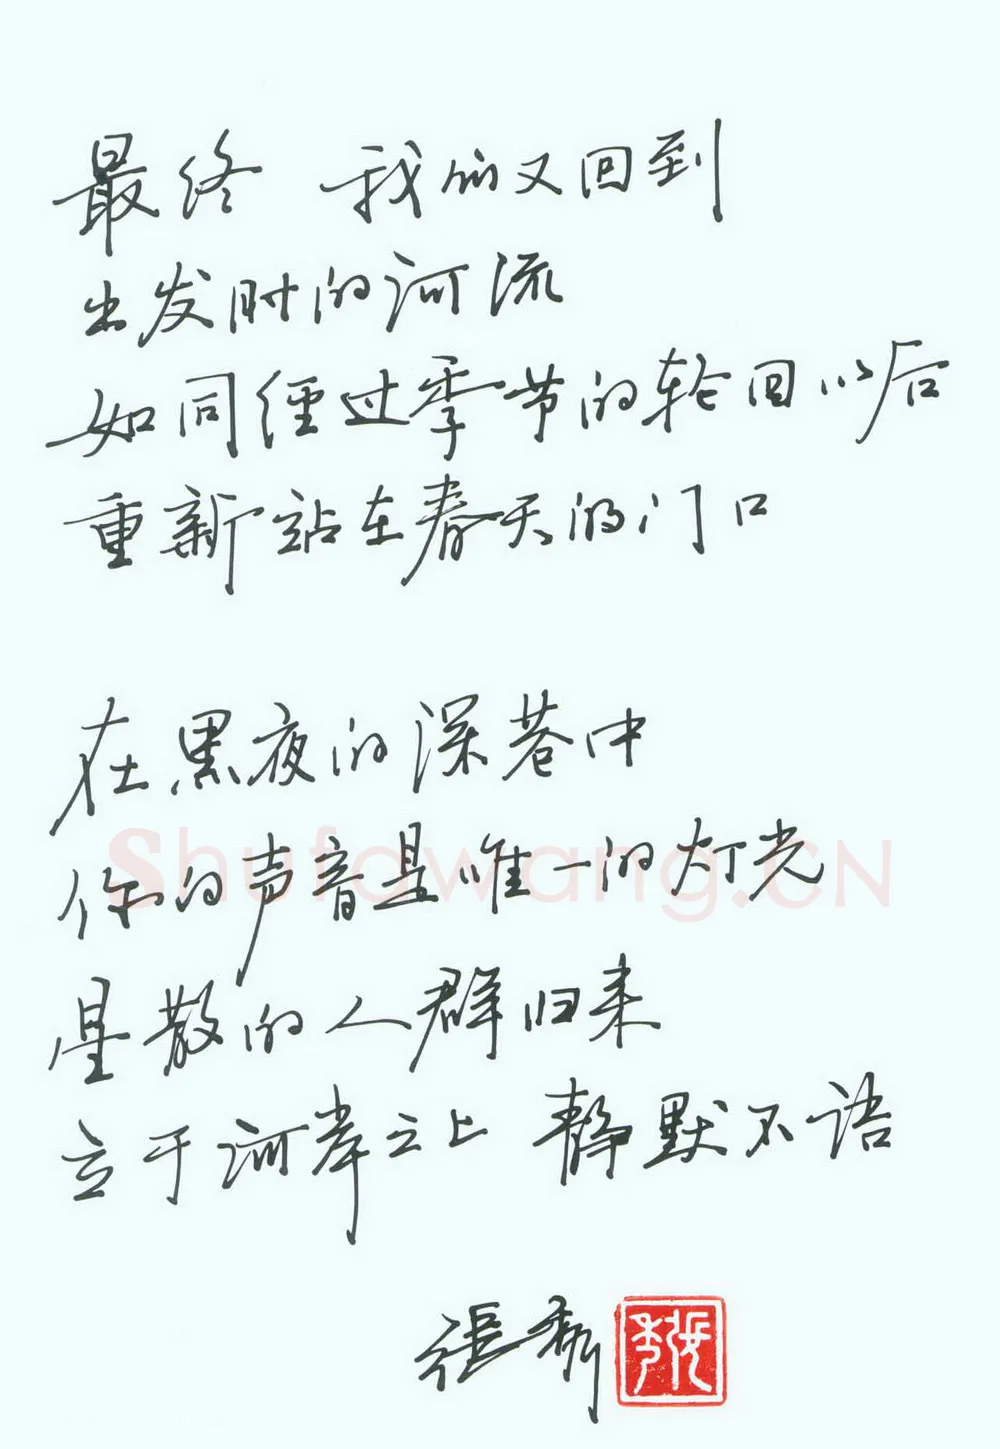 最终 我们又回到
出发时的河流
如同经过季节的轮回以后
重新站在春天的门口
在黑夜的深巷中
你的声音是唯一的灯光
星散的人群归来
立于河岸之上 静默不语
Shufawang.CN
張秀